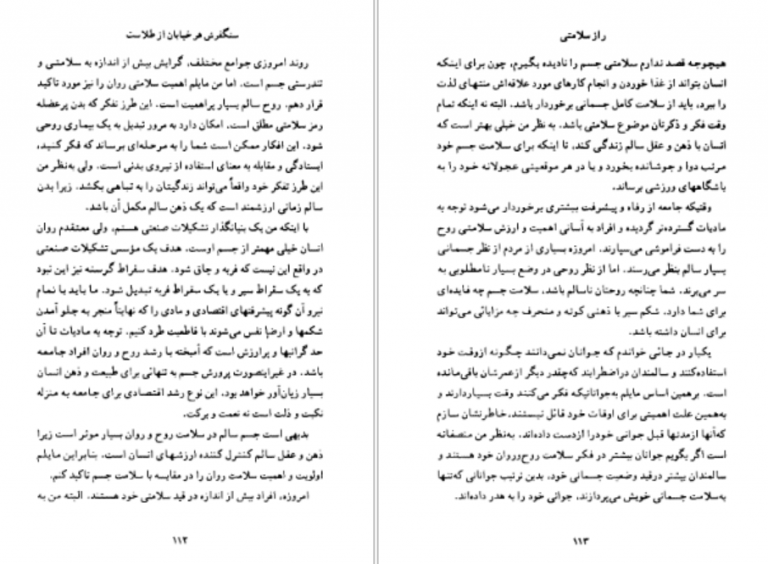 سنگفرش هر خیابان از طلاست
روند امروزی جوامع مختلف، گرایش بیش از اندازه به سلامتی و
تندرستی جسم است. اما من مایلم اهمیت سلامتی روان را نیز مورد تاکید
قرار دهم. روح سالم بسیار پراهمیت است. این طرز تفکر که بدن پرعضله
رمز سلامتی مطلق است، امکان دارد به مرور تبدیل به یک بیماری روحی
شود. این افکار ممکن است شما را به مرحله‌ای برساند که فکر کنید،
ایستادگی و مقابله به معنای استفاده از نیروی بدنی است. ولی به‌نظر من
این طرز تفکر خود واقعاً می‌تواند زندگیتان را به تباهی بکشد. زیرا بدن
سالم زمانی ارزشمند است که یک ذهن سالم مکمل آن باشد.
با اینکه من یک بنیانگذار تشکیلات صنعتی هستم، ولی معتقدم روان
انسان خیلی مهمتر از جسم اوست. هدف یک مؤسس تشکیلات صنعتی
در واقع این نیست که فربه و چاق شود. هدف سقراط گرسنه نیز این نبود
که به یک سقراط سیر و یا یک سقراط فربه تبدیل شود. ما باید با تمام
نیرو آن گونه پیشرفتهای اقتصادی و مادی را که نهایتاً منجر به جلو آمدن
شکمها و ارضا نفس می‌شوند با قاطعیت طرد کنیم. توجه به مادیات تا آن
حد گرانبها و پرارزش است که آمیخته با رشد روح و روان افراد جامعه
باشد. در غیراینصورت پرورش جسم به تنهائی برای طبیعت و ذهن انسان
بسیار زیان‌آور خواهد بود. این نوع رشد اقتصادی برای جامعه به منزله
نکبت و ذلت است نه نعمت و برکت.
بدیهی است جسم سالم در سلامت روح و روان بسیار موثر است زیرا
ذهن و عقل سالم کنترل کننده ارزشهای انسان است. بنابراین مایلم
اولویت و اهمیت سلامت روان را در مقایسه با سلامت جسم تاکید کنم.
امروزه، افراد بیش از اندازه در قید سلامتی خود هستند. البته من به
۱۱۲
راز سلامتی
هیچوجه قصد ندارم سلامتی جسم را نادیده بگیرم، چون برای اینکه
انسان بتواند از غذا خوردن و انجام کارهای مورد علاقه‌اش منتهای لذت
را ببرد، باید از سلامت کامل جسمانی برخوردار باشد. البته نه اینکه تمام
وقت فکر و ذکرتان موضوع سلامتی باشد. به نظر من خیلی بهتر است که
انسان با ذهن و عقل سالم زندگی کند، تا اینکه برای سلامت جسم خود
مرتب دوا و جوشانده بخورد و یا در هر موقعیتی عجولانه خود را به
باشگاههای ورزشی برساند.
وقتیکه جامعه از رفاه و پیشرفت بیشتری برخوردار می‌شود توجه به
مادیات گسترده‌تر گردیده و افراد به آسانی اهمیت و ارزش سلامتی روح
را به دست فراموشی می‌سپارند. امروزه بسیاری از مردم از نظر جسمانی
بسیار سالم بنظر می‌رسند. اما از نظر روحی در وضع بسیار نامطلوبی به
سر می‌برند. شما چنانچه روحتان ناسالم باشد، سلامت جسم چه فایده‌ای
برای شما دارد. شکم سیر با ذهنی کوته و منحرف چه مزایائی می‌تواند
برای انسان داشته باشد.
یکبار در جائی خواندم که جوانان نمی‌دانند چگونه ازوقت خود
استفاده‌کنند و سالمندان دراضطرابند که‌چقدر دیگر ازعمرشان باقی‌مانده
است. برهمین اساس مایلم به‌جوانانیکه فکر می‌کنند وقت بسیاردارند و
به‌همین علت اهمیتی برای اوقات خود قائل نیستند، خاطرنشان سازم
که‌آنها ازمدتها قبل جوانی خودرا ازدست داده‌اند. به‌نظر من منصفانه
است اگر بگویم جوانان بیشتر در فکر سلامت روح‌وروان خود هستند و
سالمندان بیشتر درقید وضعیت جسمانی خود. بدین ترتیب جوانانی که‌تنها
به‌سلامت جسمانی خویش می‌پردازند، جوانی خود را به هدر داده‌اند.
۱۱۳